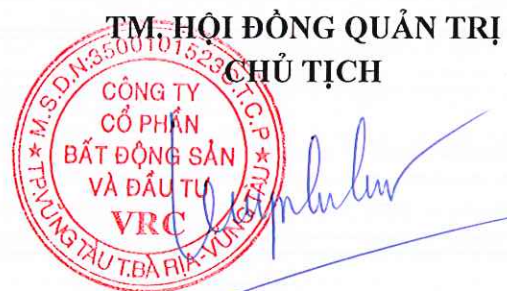 TM. HỘI ĐỒNG QUẢN TRỊ
CHỦ TỊCH
M.S.D.N:3500101523-C.T.C.P
CÔNG TY
CỔ PHẦN
BẤT ĐỘNG SẢN
VÀ ĐẦU TƯ
VRC
TP.VŨNG TÀU T.BÀ RỊA-VŨNG TÀU